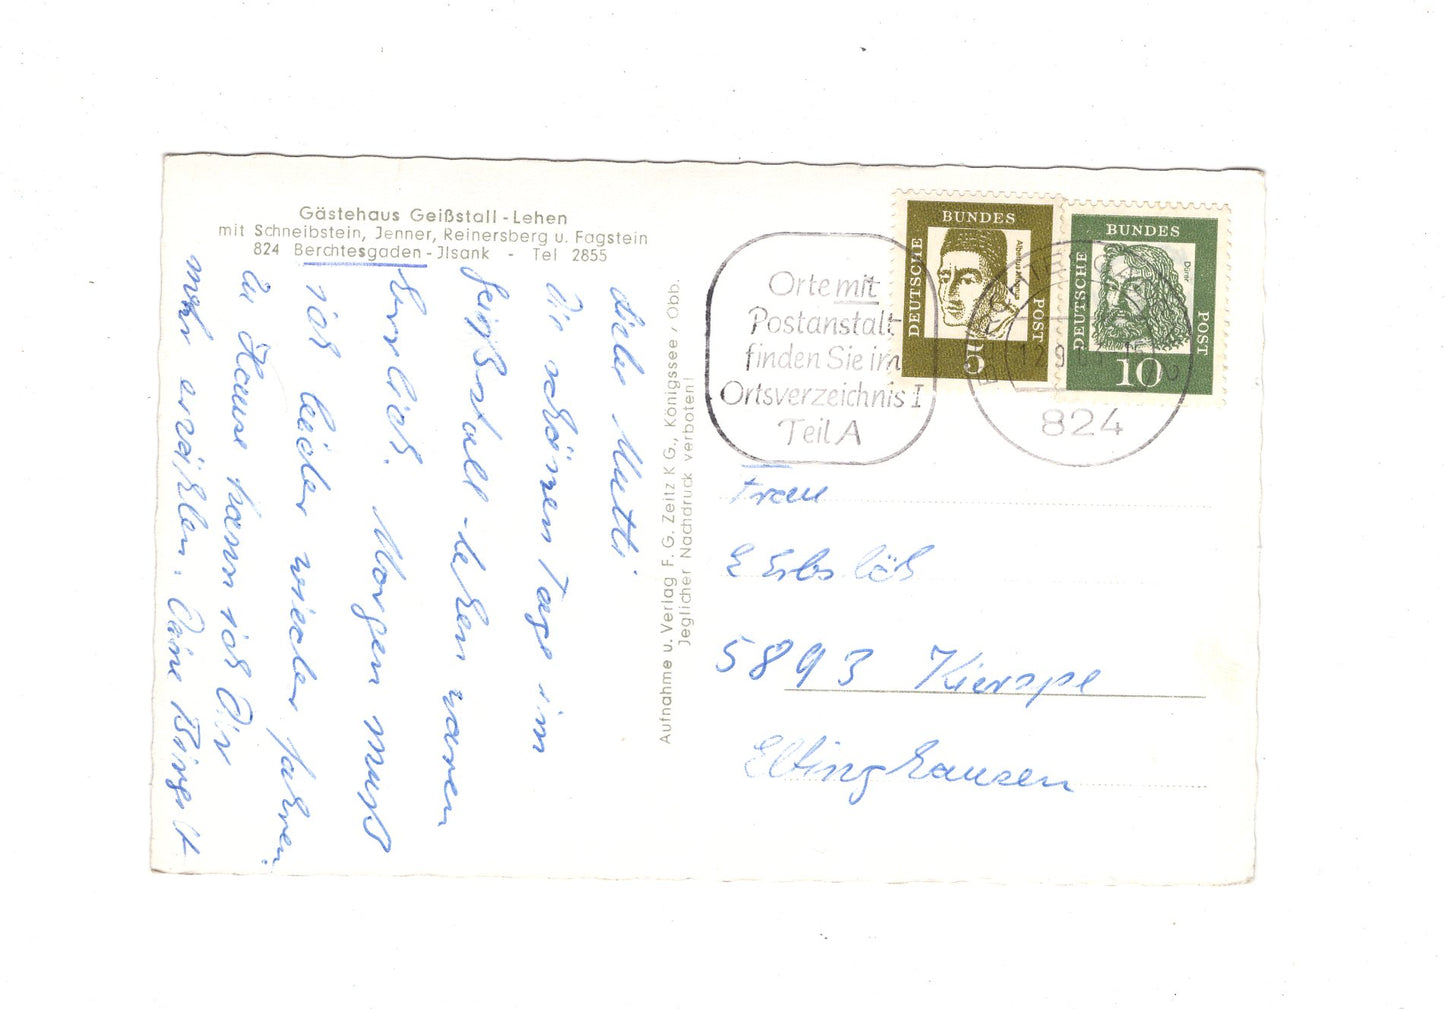 Gästehaus Geißstall-Lehen
mit Schneibstein, Jenner, Reinersberg u. Fagstein
824 Berchtesgaden-Jlsank - Tel 2855
Liebe Mutti
Die schönen Tage im
Geißstall-Lehen waren
herrlich. Morgen muß
ich leider wieder fahren.
Zu Hause kann ich Dir
mehr erzählen. Deine Birgitt
Aufnahme u. Verlag F. G. Zeitz KG., Königssee / Obb.
Jeglicher Nachdruck verboten!
Orte mit
Postanstalt
finden Sie im
Ortsverzeichnis I
Teil A
DEUTSCHE
BUNDES
POST
5
DEUTSCHE
BUNDES
POST
Dürer
10
824
Frau
E Erbslöh
5893 Kierspe
Elbinghausen